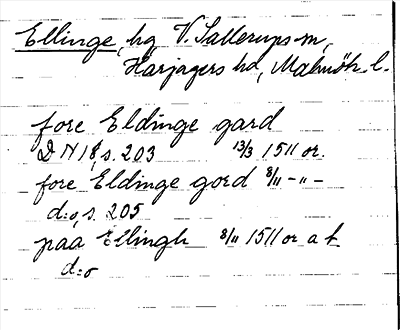 Ellinge, hg, V. Sallerups sn,
Harjagers hd, Malmöh. l.
fore Eldinge gard
DN 18, s. 203 13/3 1511 or.
fore Eldinge gord 8/11 -"-
d:o, s. 205
paa Ellingh 8/11 1511 or a t
d:o